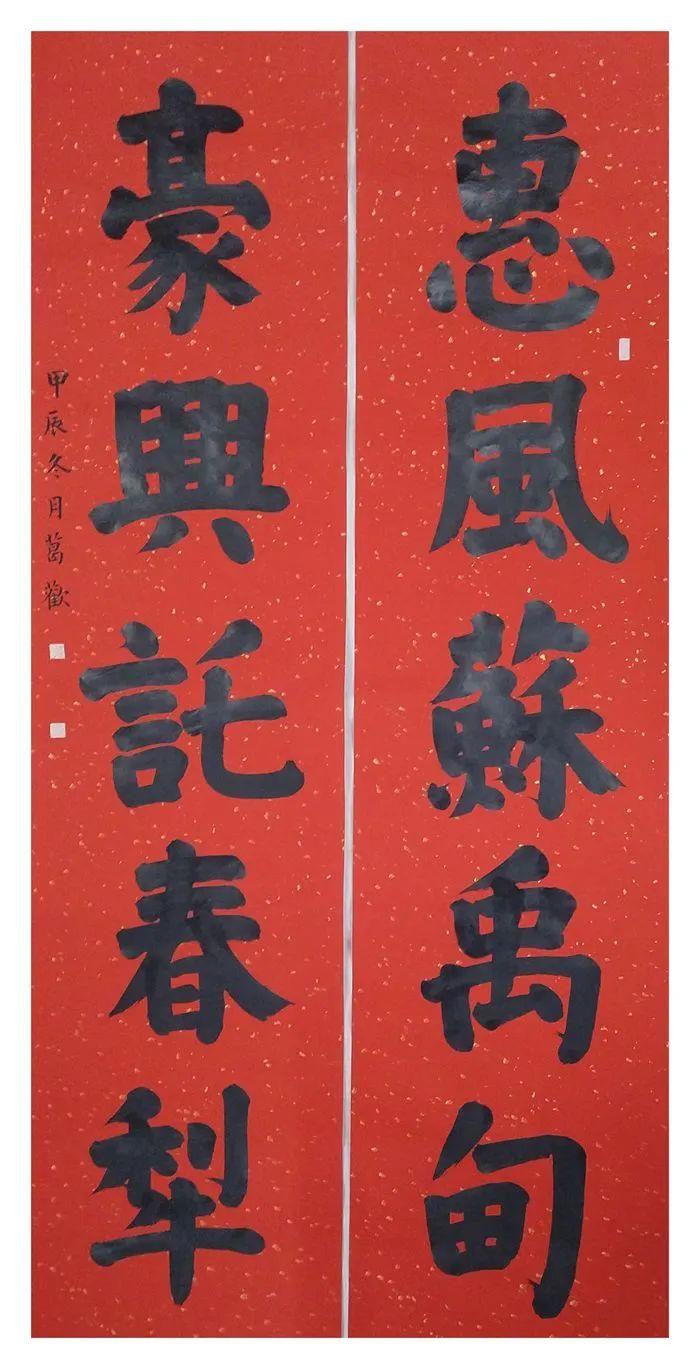 惠風蘇禹甸
豪興託春犁
甲辰冬月葛歡